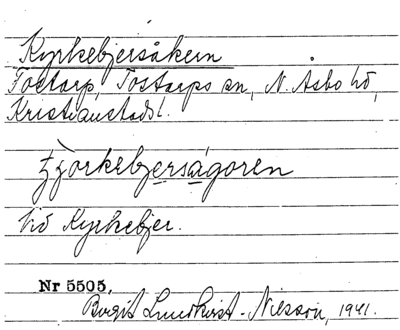 Kyrkebjersåkern
Tostarp, Tostarps sn, N. Åsbo hd,
Kristianstads l.
tjörkebjersågoren
Vid Kyrkebjer.
Nr 5505,
Birgit Lundkvist-Nilsson, 1941.